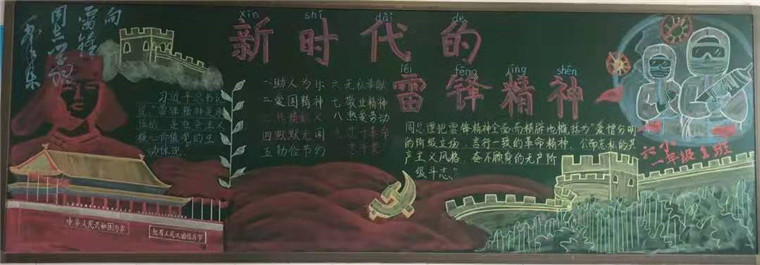 向
雷锋
同志学习
毛泽东
xīn shí dài de
新时代的
léi fēng jīng shén
雷锋精神
习近平总书记
雷锋精神是
核心价值观的生
动体现
一助人为乐 六无私奉献
二爱国精神 七敬业精神
八热爱劳动
四默默无闻
五勤俭节约
周总理把雷锋精神全面而精辟地概括为“爱憎分明
的阶级立场、言行一致的革命精神、公而忘私的共
产主义风格、奋不顾身的无产阶
级斗志。”
六小
年级1班
中华人民共和国万岁
世界人民大团结万岁